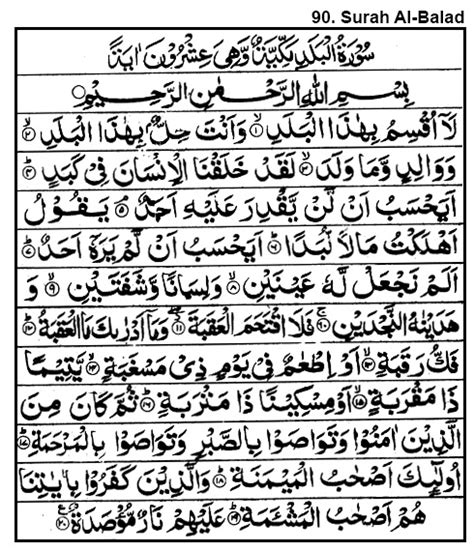 90. Surah Al-Balad
سُوْرَةُ الْبَلَدِ مَكِّيَّةٌ وَّهِيَ عِشْرُوْنَ اٰيَةً
بِسْمِ اللّٰهِ الرَّحْمٰنِ الرَّحِيْمِ
لَاۤ اُقْسِمُ بِهٰذَا الْبَلَدِ ۝۱ وَاَنْتَ حِلٌّۢ بِهٰذَا الْبَلَدِ ۝۲
وَوَالِدٍ وَّمَا وَلَدَ ۝۳ لَقَدْ خَلَقْنَا الْاِنْسَانَ فِيْ كَبَدٍ ۝۴
اَيَحْسَبُ اَنْ لَّنْ يَّقْدِرَ عَلَيْهِ اَحَدٌ ۝۵ يَقُوْلُ
اَهْلَكْتُ مَالًا لُّبَدًا ۝۶ اَيَحْسَبُ اَنْ لَّمْ يَرَهٗۤ اَحَدٌ ۝۷
اَلَمْ نَجْعَلْ لَّهٗ عَيْنَيْنِ ۝۸ وَلِسَانًا وَّشَفَتَيْنِ ۝۹ وَ
هَدَيْنٰهُ النَّجْدَيْنِ ۝۱۰ فَلَا اقْتَحَمَ الْعَقَبَةَ ۝۱۱ وَمَاۤ اَدْرٰىكَ مَا الْعَقَبَةُ ۝۱۲
فَكُّ رَقَبَةٍ ۝۱۳ اَوْ اِطْعٰمٌ فِيْ يَوْمٍ ذِيْ مَسْغَبَةٍ ۝۱۴ يَّتِيْمًا
ذَا مَقْرَبَةٍ ۝۱۵ اَوْ مِسْكِيْنًا ذَا مَتْرَبَةٍ ۝۱۶ ثُمَّ كَانَ مِنَ
الَّذِيْنَ اٰمَنُوْا وَتَوَاصَوْا بِالصَّبْرِ وَتَوَاصَوْا بِالْمَرْحَمَةِ ۝۱۷
اُولٰٓئِكَ اَصْحٰبُ الْمَيْمَنَةِ ۝۱۸ وَالَّذِيْنَ كَفَرُوْا بِاٰيٰتِنَا
هُمْ اَصْحٰبُ الْمَشْـَٔمَةِ ۝۱۹ عَلَيْهِمْ نَارٌ مُّؤْصَدَةٌ ۝۲۰